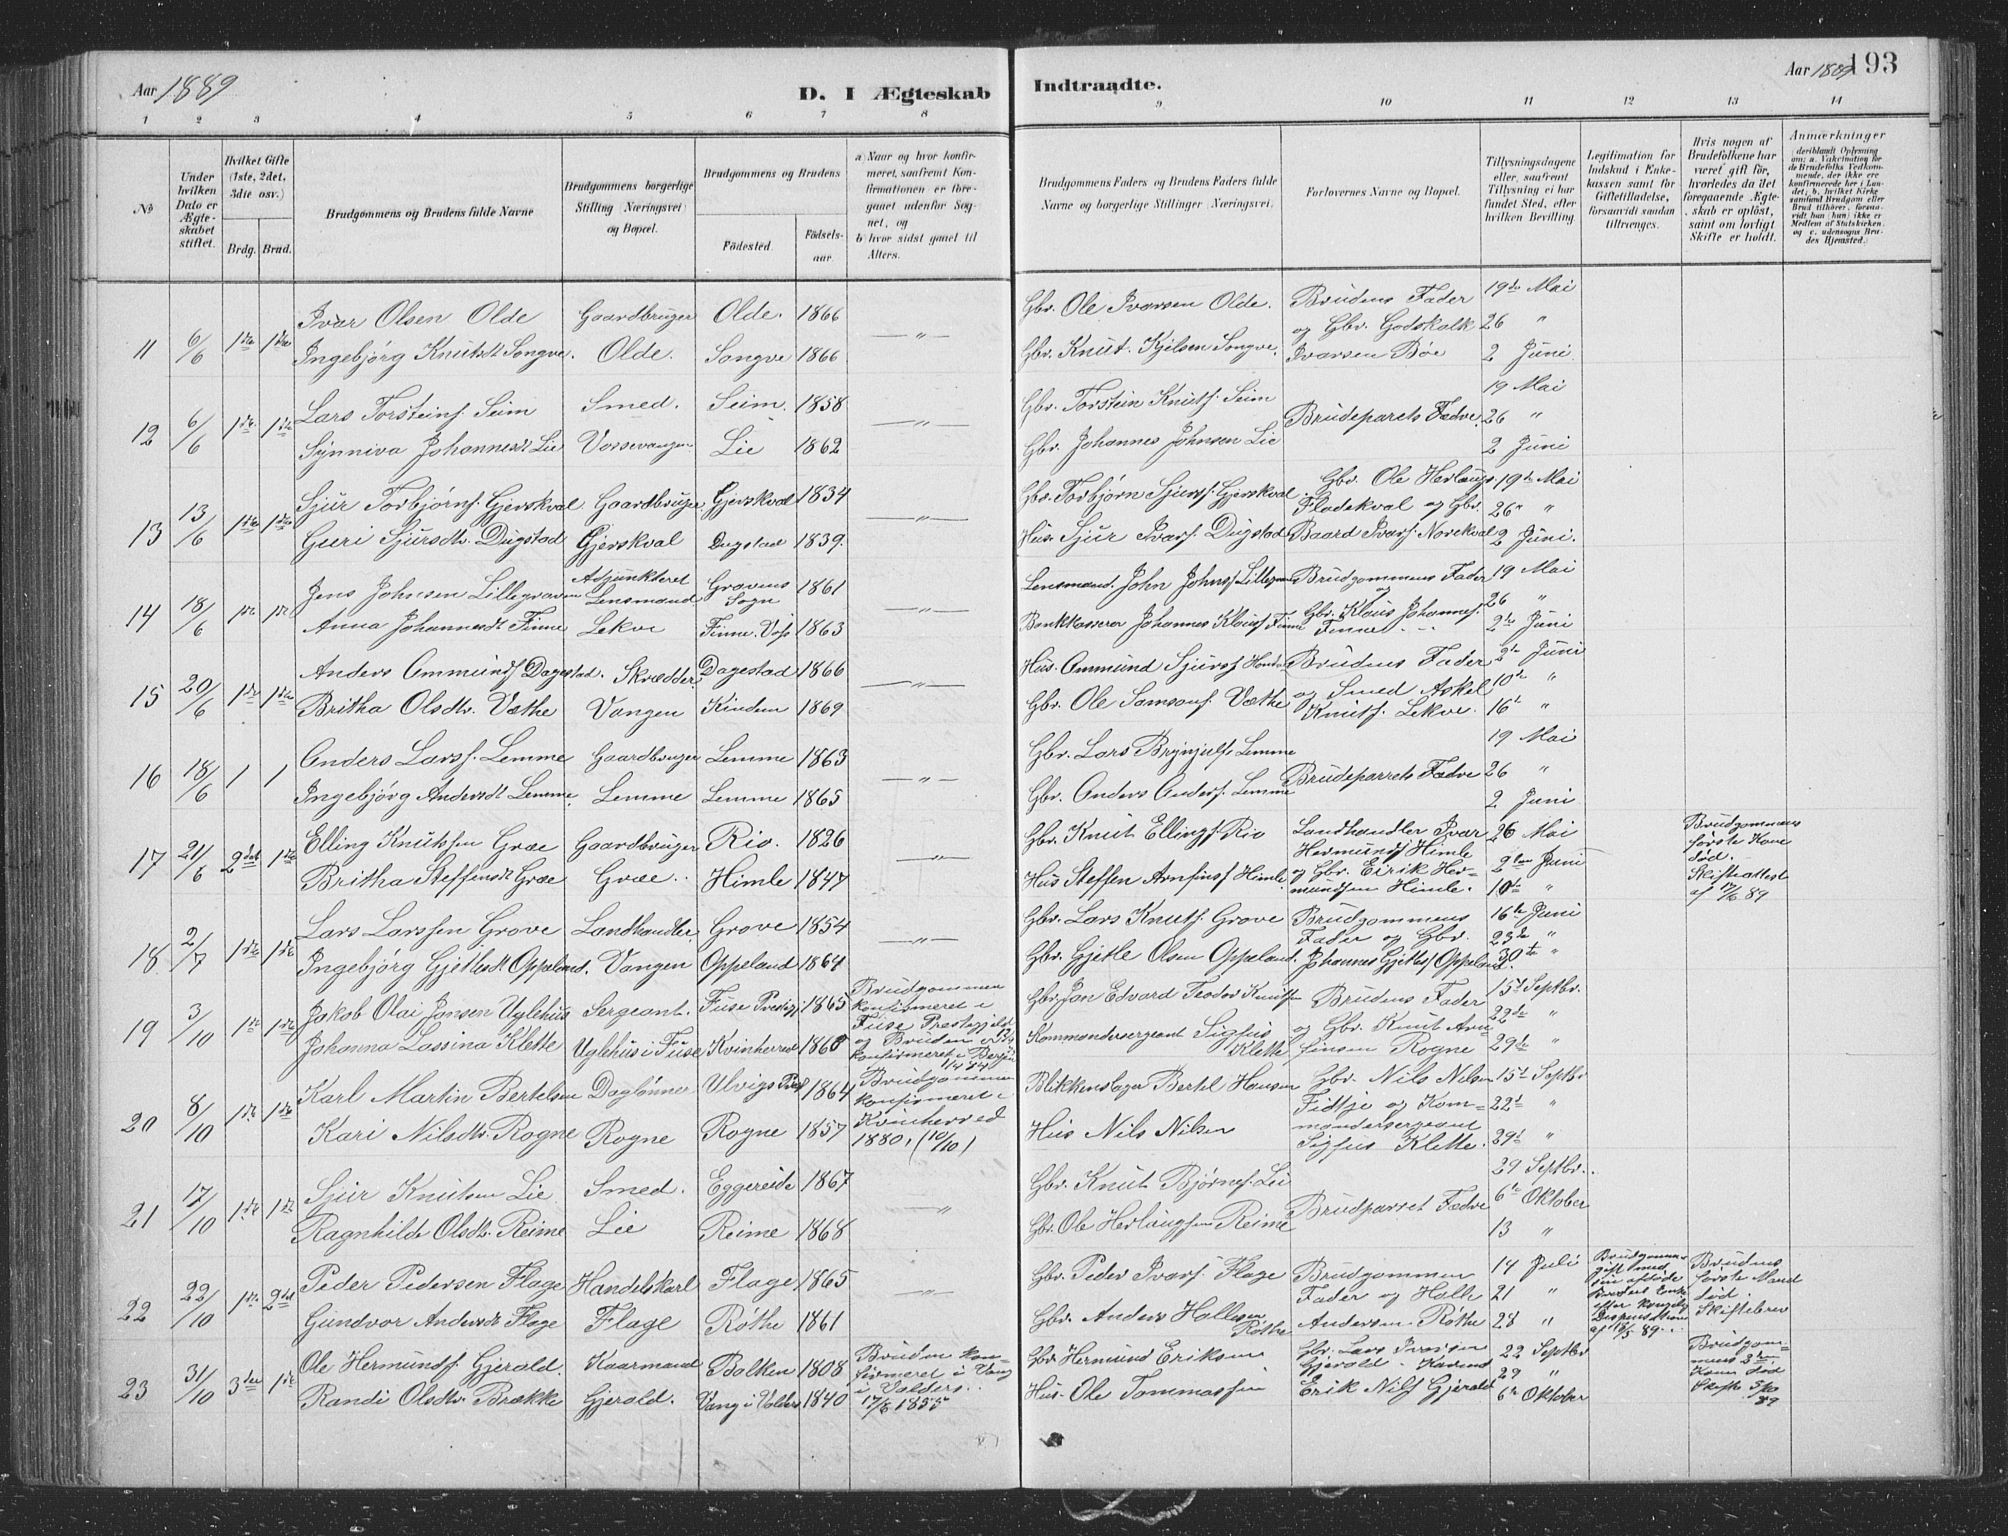 Aar 1889
D. I Ægteskab
Indtraadte.
Aar 1889 193
1 2 3 4 5 6 7 8 9 10 11 12 13 14
No
Under hvilken Dato er Ægteskabet stiftet.
Hvilket Gifte (1ste, 2det, 3die osv.)
Brdg. Brud.
Brudgommens og Brudens fulde Navne
Brudgommens borgerlige Stilling (Næringsvei) og Bopæl.
Brudgommens og Brudens
Fødested. Fødselsaar.
a) Naar og hvor konfirmeret, saafremt Konfirmationen er foregaaet udenfor Sognet, og
b) hvor sidst gaaet til Alters.
Brudgommens Faders og Brudens Faders fulde Navne og borgerlige Stillinger (Næringsvei).
Forlovernes Navne og Bopæl.
Tillysningsdagene eller, saafremt Tillysning ei har fundet Sted, efter hvilken Bevilling.
Legitimation for Indskud i Enkekassen samt for Giftetilladelse, forsaavidt saadan tiltrænges.
Hvis nogen af Brudefolkene har været gift før, hvorledes da det foregaaende Ægteskab er opløst, samt om lovligt Skifte er holdt.
Anmærkninger
11 6/6 1ste 1ste Ivar Olsen Olde Gaardbruger Olde. 1866 Gbr. Ole Ivarsen Olde. Brudens Fader 19de Mai
Ingebjørg Knutsdt Songve. Olde. Songve 1866 — " — Gbr. Knut Kjelsen Songve. og Gbr. Godskalk Ivarsen Bøe 26 " 2 Juni
12 6/6 1ste 1ste Lars Torsteins. Seim Smed. Seim. 1858 Gbr. Torstein Knuts. Seim Brudeparets Fædre. 19 Mai
Synniva Johannesdt Lie Vossevangen Lie 1862 — " — Gbr. Johannes Johnsen Lie 26 " 2 Juni
13 13/6 1ste 1ste Sjur Torbjørns. Gjerskval Gaardbruger Gjerskval 1834 Gbr. Torbjørn Sjurs. Gjerskval Gbr. Ole Herlaugs. Fladekval og Gbr. 19de Mai
Guri Sjursdtr. Dugstad Gjerskval Dugstad 1839. — " — Hus. Sjur Ivars. Dugstad Baard Ivars. Norekval 26 " 2 Juni.
14 18/6 1ste 1ste Jens Johnsen Lillegraven Adjunkteret Lensmand Gravens Sogn 1861 Lensmand John Johns. Lillegraven Brudgommens Fader 19 Mai
Anna Johannesdt Finne Lekve Finne. Voss 1863 — " — Bankkasserer Johannes Klaus. Finne og Gbr. Klaus Johannes. Finne 26 " 2de Juni
15 20/6 1ste 1ste Anders Ommunds. Dagestad. Skrædder. Dagestad 1866 Hus. Ommund Sjurs. Brudens Fader 2de Juni
Britha Olsdtr. Væthe Vangen Kindem 1869 — " — Gbr. Ole Samsons. Væthe og Smed Askel Knuts. Lekve. 10de " 16de "
16 18/6 1 1 Anders Larss. Lemme Gaardbruger Lemme 1863 Gbr. Lars Brynjulfs. Lemme Brudeparrets Fædre 19 Mai
Ingebjørg Andersdt Lemme. Lemme Lemme 1865 — " — Gbr. Anders Anders. Lemme 26 " 2 Juni
17 21/6 2det 1ste Elling Knutssen Græe Gaardbruger Rio. 1826 Gbr. Knut Ellings. Rio Landhandler Ivar Hermunds. Himle 26 Mai Brudgommens første Kone død.
Britha Steffensdt Græe Græe. Himle 1847 — " — Hus Steffen Arnfins. Himle og Gbr. Eirik Hermundsen Himle. 2den Juni 10de " Skifteattest af 17/6 89
18 2/7 1ste 1ste Lars Larssen Grove Landhandler. Grove 1854 Gbr. Lars Knuts. Grove Brudgommens Fader og Gbr. 16de Juni
Ingebjørg Gjetlesdt Oppeland. Vangen Oppeland 1864 — " — Gbr. Gjetle Olsen Oppeland. Johannes Gjetles. Oppeland. 23de " 30te "
19 3/10 1ste 1ste Jakob Olai Jansen Uglehus Sergeant. Fuse Prestegj. 1865 Brudgommen konfirmeret i Fuse Prestegjeld Gbr. Jan Edvard Teodor Knutsen Brudens Fader 15de Septbr.
Johanna Lassina Klette Uglehus i Fuse Kvinherred og Bruden er konfirmeret i Bergen Kommandersergeant Sigfus Klette og Gbr. Knut Arnfinsen Rogne 22de " 29de "
20 8/10 1ste 1ste Karl Martin Bertelsen Dagløner Ulvigs 1864 Brudgommen konfirmeret i Blikkenslager Bertel Hansen Gbr. Nils Nilsen Fidtje og Kom= 15de Septbr
Kari Nilsdtr. Rogne Rogne Rogne 1857 Kvinherred 1880, (10/10) Hus Nils Nilsen mandersergeant Sigfus Klette. 22de " 29de "
21 17/10 1ste 1ste Sjur Knutsen Lie Smed. Eggereide 1867 Gbr. Knut Bjørns. Lie Brudparret Fædre 29 Septbr.
Ragnhilde Olsdtr. Reime Lie Reime 1868 — " Gbr. Ole Herlaugsen Reime 6te Oktober 13 "
22 22/10 1ste 2det Peder Pedersen Flage Handelskarl Flage 1865 Gbr. Peder Ivars. Flage Brudgommen Fader og Halle 14 Juli Brudgommen gift med sin afdøde Broders Enke Brudens første Mand død.
Gundvor Andersdt Flage Flage Røthe 1861 — " — Gbr. Anders Hallesen Røthe Andersen Røthe 21 " 28 " efter kongelig Dispensation af 18/5 89. Skiftebrev
23 31/10 3die 1ste Ole Hermunds. Gjerald. Kaarmand Bolken 1808 Bruden konfirmeret i Vang Gbr. Hermund Eriksen Gbr. Lars Ivarsen Gjerald. 22 Septbr Brudgommens 2den Kone død
Randi Olsdtr. Brække Gjerald. Vang i Valders 1840 i Valders. 17/6 1855 Hus. Ole Tommassen Erik Nils. Gjerald 29 " 6te Oktober Skifte 5/10 89